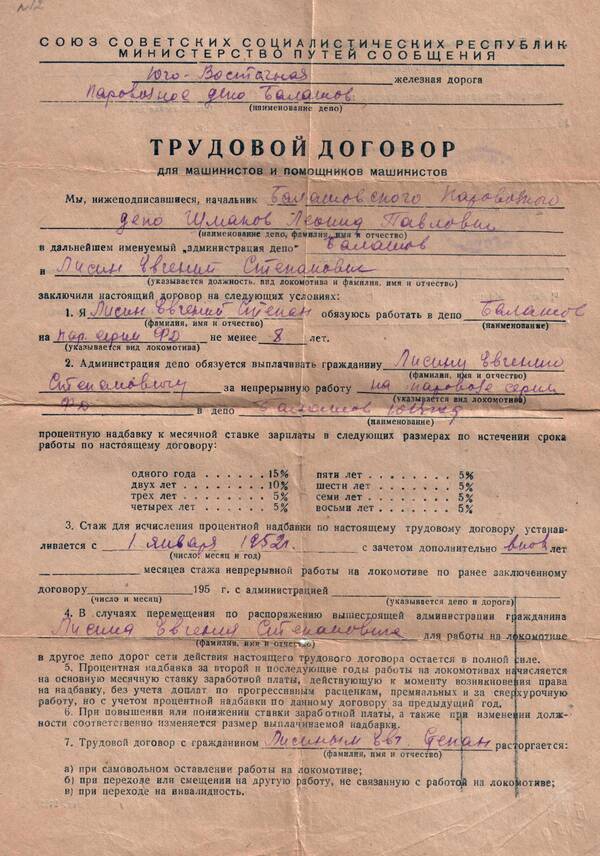 №2
СОЮЗ СОВЕТСКИХ СОЦИАЛИСТИЧЕСКИХ РЕСПУБЛИК
МИНИСТЕРСТВО ПУТЕЙ СООБЩЕНИЯ
Юго-Восточная железная дорога
Паровозное депо Балашов
(наименование депо)
ТРУДОВОЙ ДОГОВОР
для машинистов и помощников машинистов
Мы, нижеподписавшиеся, начальник Балашовского Паровозного
депо Шмаков Леонид Павлович
(наименование депо, фамилия, имя и отчество)
в дальнейшем именуемый „администрация депо" Балашов
и Лисин Евгений Степанович
(указывается должность, вид локомотива и фамилия, имя и отчество)
заключили настоящий договор на следующих условиях:
1. Я Лисин Евгений Степан обязуюсь работать в депо Балашов
(фамилия, имя и отчество) (наименование)
на пар. серии ФД не менее 8 лет.
(указывается вид локомотива)
2. Администрация депо обязуется выплачивать гражданину Лисину Евгению
(фамилия, имя и отчество)
Степановичу за непрерывную работу на паровозе серии
(указывается вид локомотива)
ФД в депо Балашов
(наименование)
процентную надбавку к месячной ставке зарплаты в следующих размерах по истечении срока
работы по настоящему договору:
одного года . . . . . . . 15% пяти лет . . . . . . . . 5%
двух лет . . . . . . . . 10% шести лет . . . . . . . 5%
трех лет . . . . . . . . 5% семи лет . . . . . . . 5%
четырех лет . . . . . . 5% восьми лет . . . . . . 5%
3. Стаж для исчисления процентной надбавки по настоящему трудовому договору устанав-
ливается с 1 января 1952г. с зачетом дополнительно лет
(число, месяц и год)
месяцев стажа непрерывной работы на локомотиве по ранее заключенному
договору 195 г. с администрацией
(число и месяц) (указывается депо и дорога)
4. В случаях перемещения по распоряжению вышестоящей администрации гражданина
Лисина Евгения Степановича для работы на локомотиве
(фамилия, имя и отчество)
в другое депо дорог сети действия настоящего трудового договора остается в полной силе.
5. Процентная надбавка за второй и последующие годы работы на локомотивах начисляется
на основную месячную ставку заработной платы, действующую к моменту возникновения права
на надбавку, без учета доплат по прогрессивным расценкам, премиальных и за сверхурочную
работу, но с учетом процентной надбавки по данному договору за предыдущий год.
6. При повышении или понижении ставки заработной платы, а также при изменении долж-
ности соответственно изменяется размер выплачиваемой надбавки.
7. Трудовой договор с гражданином Лисиным Евг. Степан расторгается:
(фамилия, имя и отчество)
а) при самовольном оставлении работы на локомотиве;
б) при переходе или смещении на другую работу, не связанную с работой на локомотиве;
в) при переходе на инвалидность.